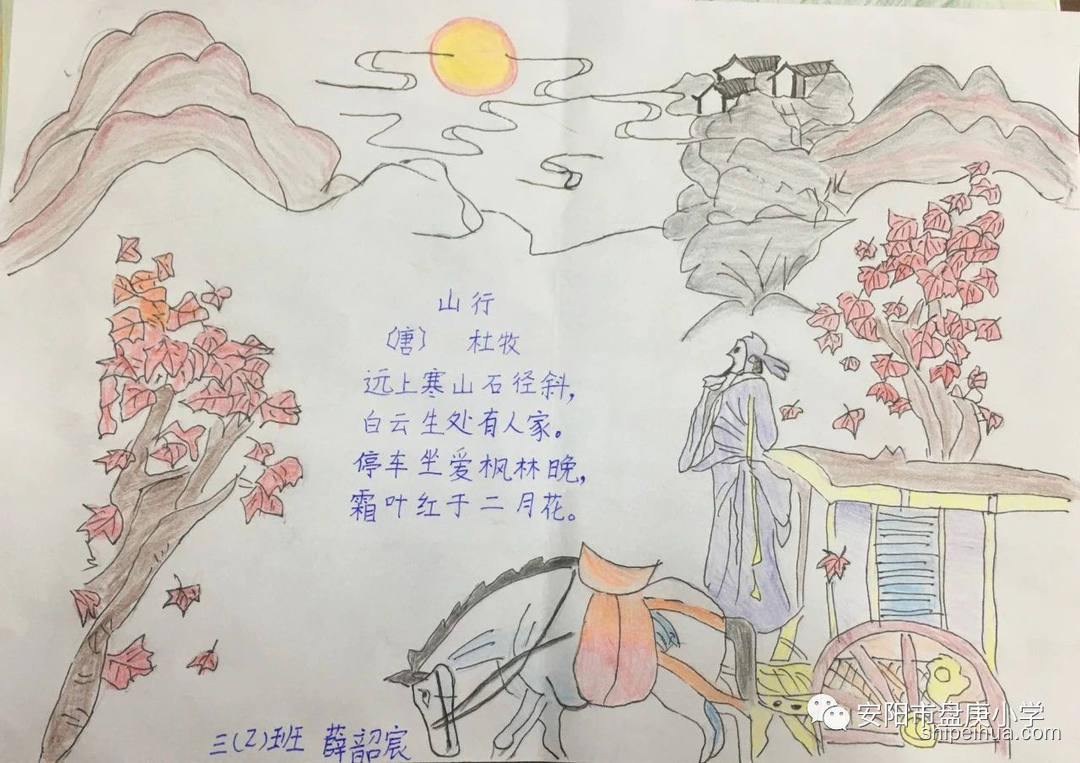 山行
〔唐〕 杜牧
远上寒山石径斜，
白云生处有人家。
停车坐爱枫林晚，
霜叶红于二月花。
三(2)班 薛韶宸
安阳市盘庚小学
shipeihua.com